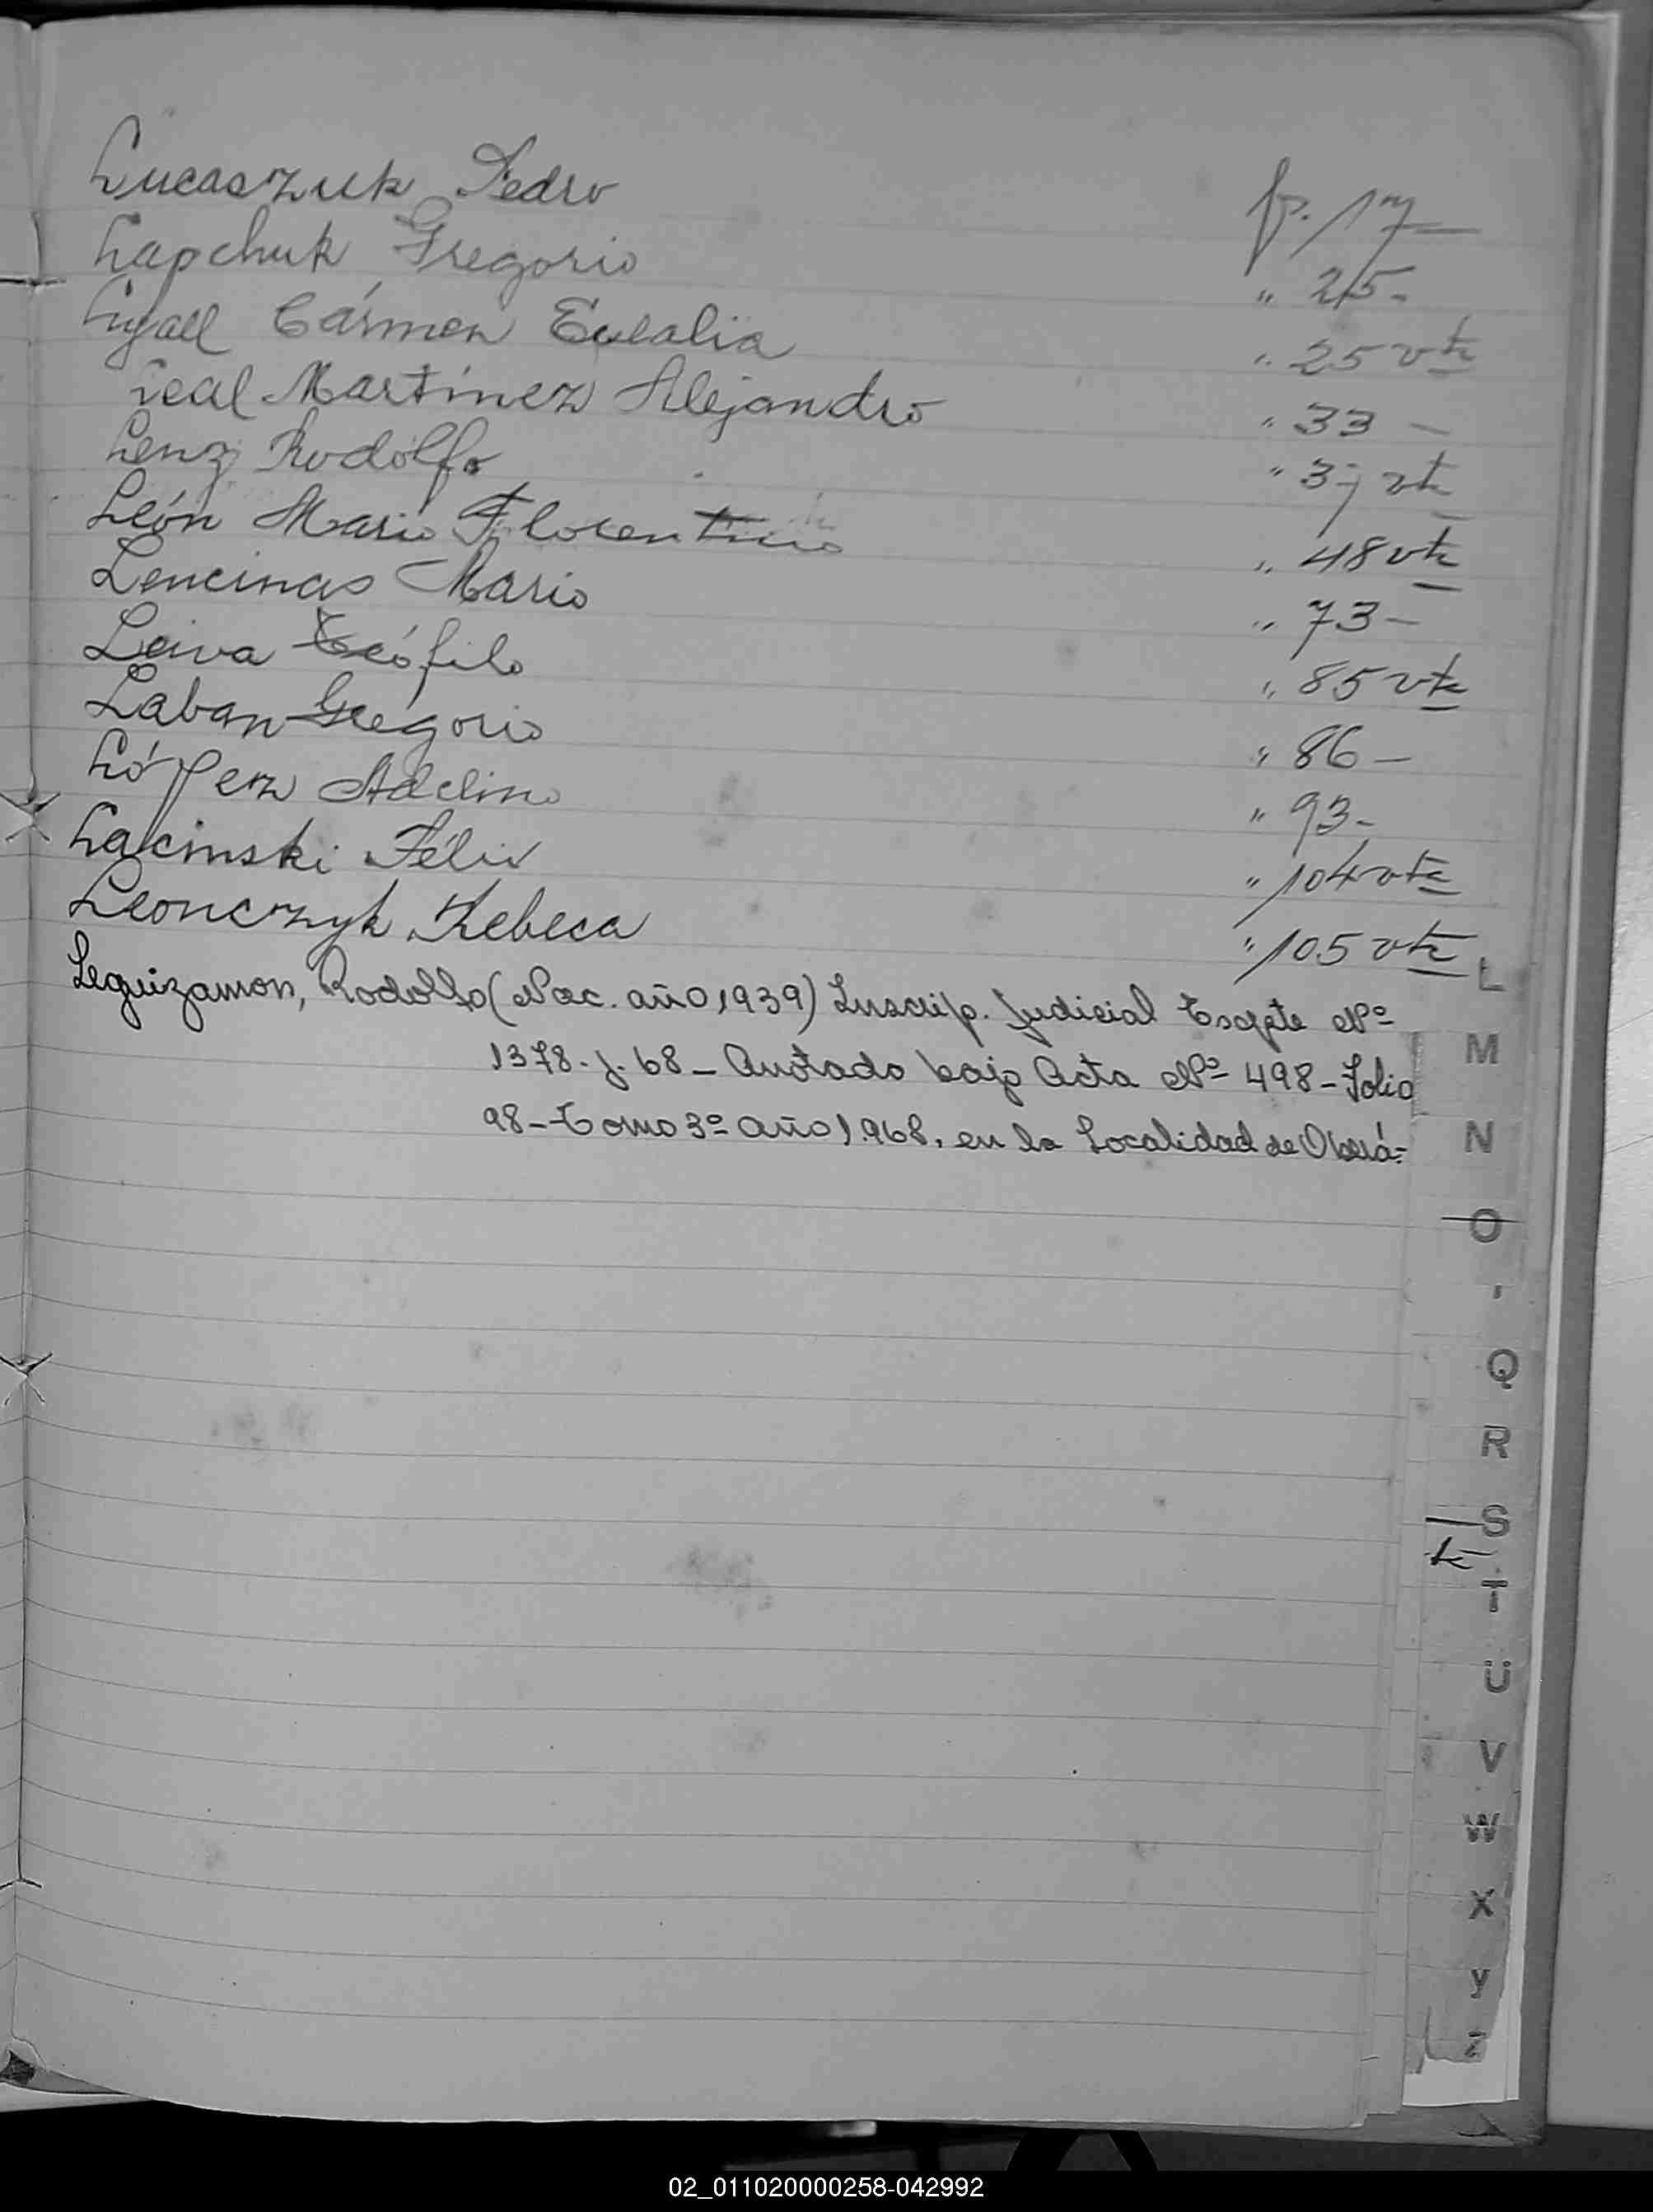 Lucaszuk Pedro fp. 17
Lapchuk Gregorio " 25-
Lyall Cármen Eulalia " 25 vta
Leal Martínez Alejandro " 33 -
Lenz Rodolfo " 37 vta
León Mario Florentino " 48 vta
Lencinas Mario " 73 -
Leiva Teófilo " 85 vta
Laban Gregorio " 86 -
López Adelino " 93 -
Lacinski Félix " 104 vta
Leonczyk Rebeca " 105 vta
Leguizamon, Rodolfo (Nac. año 1939) Inscrip. Judicial Expte Nº
1378. J. 68 - Anotado bajo Acta Nº 498 - Folio
98 - Tomo 3º año 1.968, en la Localidad de Oberá-
L
M
N
O
Q
R
S
T
Ü
V
W
X
y
z
02_011020000258-042992